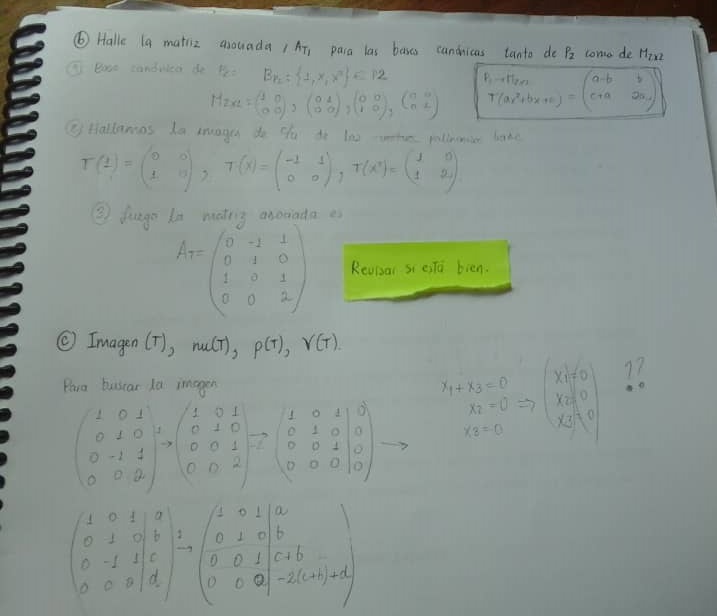 ⓑ Halle la matriz asociada, A_T, para las bases canónicas tanto de P₂ como de M₂ₓ₂
① Base canónica de P₂: B_P₂ = {1, x, x²} ∈ P2
M₂ₓ₂ = (1 0; 0 0), (0 1; 0 0), (0 0; 1 0), (0 0; 0 1)
P₂→M₂ₓ₂
T(ax²+bx+c) = (a-b b; c+a 2a)
② Hallamos la imagen de c/u de los polinomios base
T(1) = (0 0; 1 0), T(x) = (-1 1; 0 0), T(x²) = (1 0; 1 2)
③ Luego la matriz asociada es
A_T = (0 -1 1; 0 1 0; 1 0 1; 0 0 2)
Revisar si está bien.
ⓒ Imagen (T), nu(T), ρ(T), V(T).
Para buscar la imagen
(1 0 1; 0 1 0; 0 -1 1; 0 0 2) 1→ (1 0 1; 0 1 0; 0 0 1; 0 0 2) → -2 (1 0 1 | 0; 0 1 0 | 0; 0 0 1 | 0; 0 0 0 | 0) →
x₁ + x₃ = 0
x₂ = 0 ⇒ (x₁ = 0; x₂ = 0; x₃ = 0) ??
x₃ = 0
(1 0 1 | a; 0 1 0 | b; 0 -1 1 | c; 0 0 0 | d) 1→ (1 0 1 | a; 0 1 0 | b; 0 0 1 | c+b; 0 0 0 | -2(c+b)+d)